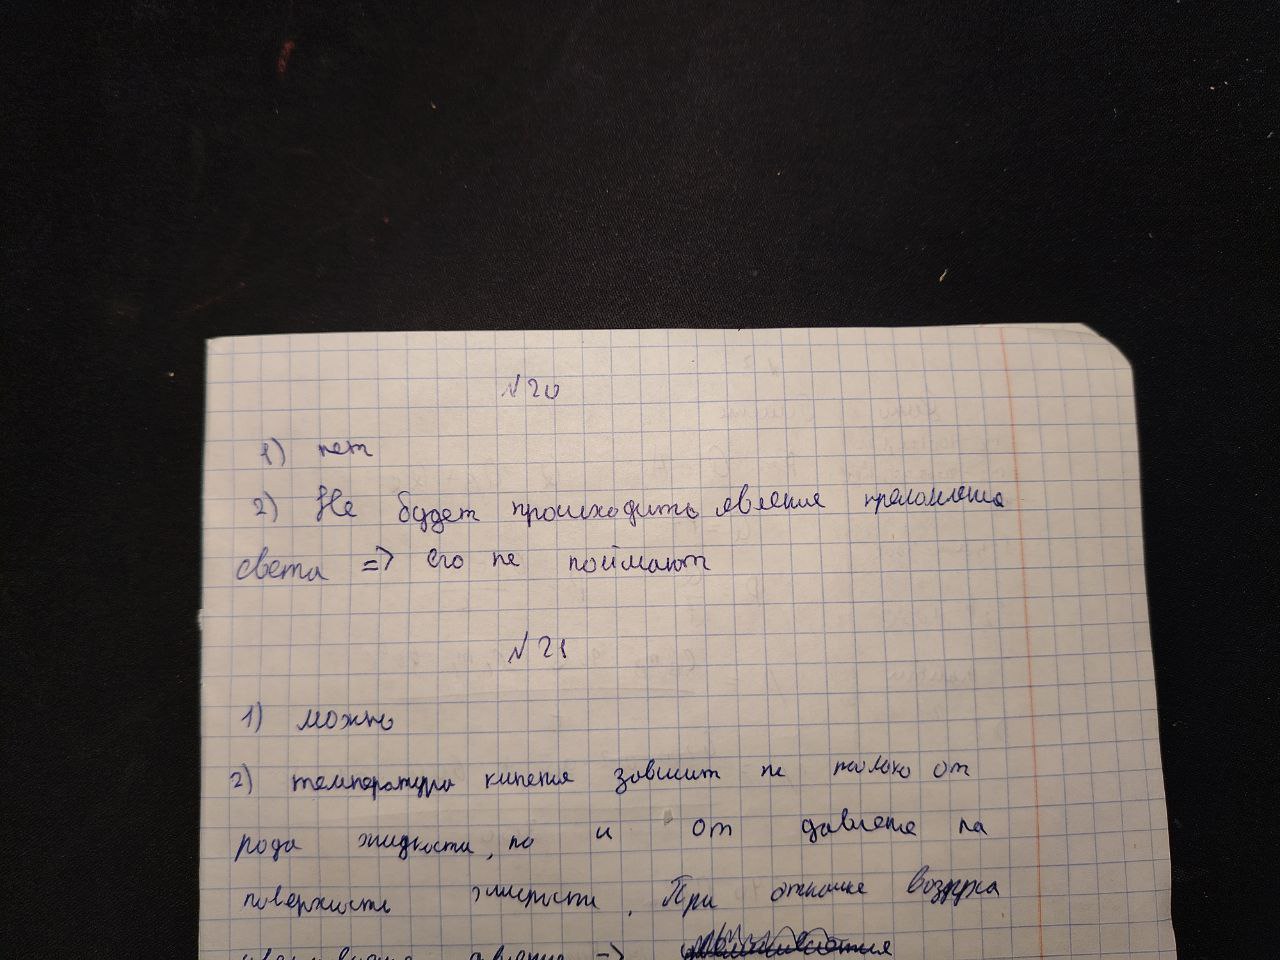 №20
1) нет
2) Не будет происходить явления преломления
света => его не поймают
№21
1) можно
2) температура кипения зависит не только от
рода жидкости, но и от давления на
поверхность . При откачке воздуха
=>